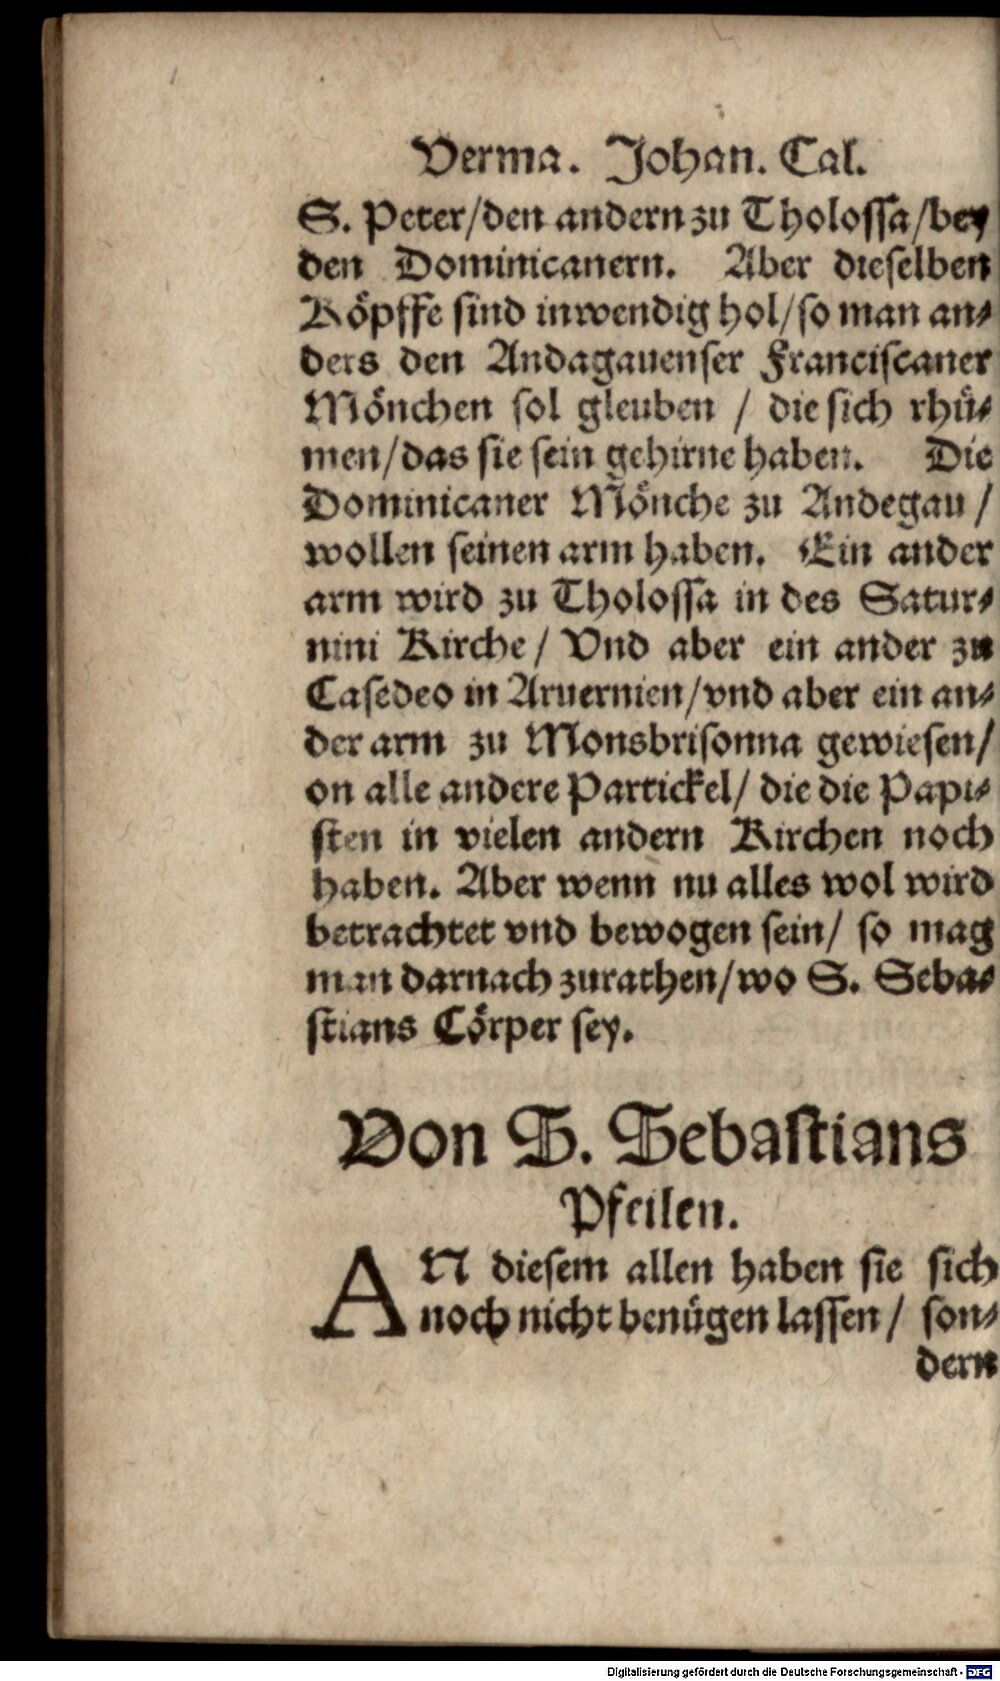 Verma. Johan. Cal.
S. Peter/den andern zu Tholossa/bey
den Dominicanern. Aber dieselben
Köpffe sind inwendig hol/so man an⸗
ders den Andagauenser Franciscaner
Mönchen sol gleuben / die sich rhü⸗
men/das sie sein gehirne haben. Die
Dominicaner Mönche zu Andegau /
wollen seinen arm haben. Ein ander
arm wird zu Tholossa in des Satur⸗
nini Kirche / Vnd aber ein ander zu
Casedeo in Aruernien/vnd aber ein an⸗
der arm zu Monsbrisonna gewiesen/
on alle andere Partickel/ die die Papi⸗
sten in vielen andern Kirchen noch
haben. Aber wenn nu alles wol wird
betrachtet vnd bewogen sein/ so mag
man darnach zurathen/wo S. Seba⸗
stians Cörper sey.
Von S. Sebastians
Pfeilen.
AN diesem allen haben sie sich
noch nicht benügen lassen / son⸗
dern
Digitalisierung gefördert durch die Deutsche Forschungsgemeinschaft - DFG